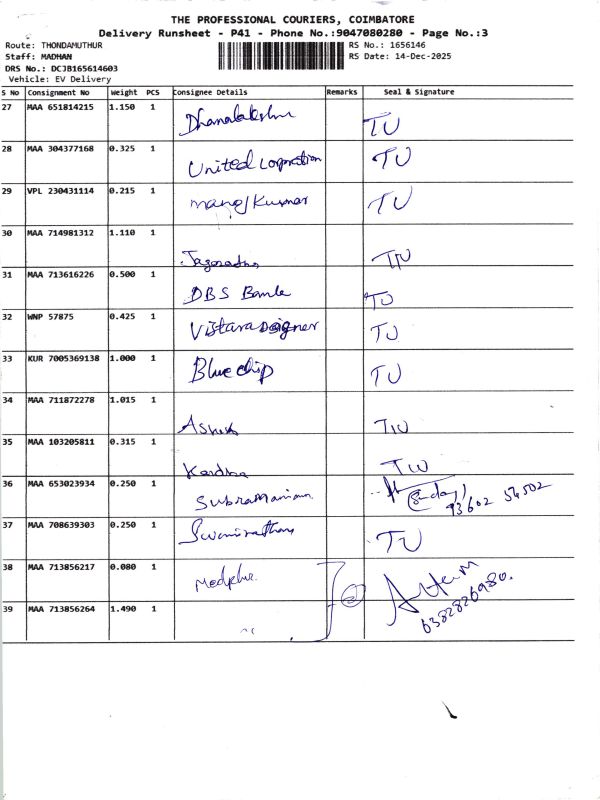 THE PROFESSIONAL COURIERS, COIMBATORE
Delivery Runsheet - P41 - Phone No.:9047080280 - Page No.:3
Route: THONDAMUTHUR RS No.: 1656146
Staff: MADHAN RS Date: 14-Dec-2025
DRS No.: DCJB165614603
Vehicle: EV Delivery
S No Consignment No Weight PCS Consignee Details Remarks Seal & Signature
27 MAA 651814215 1.150 1 TU
28 MAA 304377168 0.325 1 United TU
29 VPL 230431114 0.215 1 manojkumar TU
30 MAA 714981312 1.110 1
31 MAA 713616226 0.500 1 DBS TU
32 WNP 57875 0.425 1 Vistara TU
33 KUR 7005369138 1.000 1 Bluechip TU
34 MAA 711872278 1.015 1
35 MAA 103205811 0.315 1
36 MAA 653023934 0.250 1 Subramaniam (Sunday)
93602 56502
37 MAA 708639303 0.250 1 TU
38 MAA 713856217 0.080 1
6382826980.
39 MAA 713856264 1.490 1